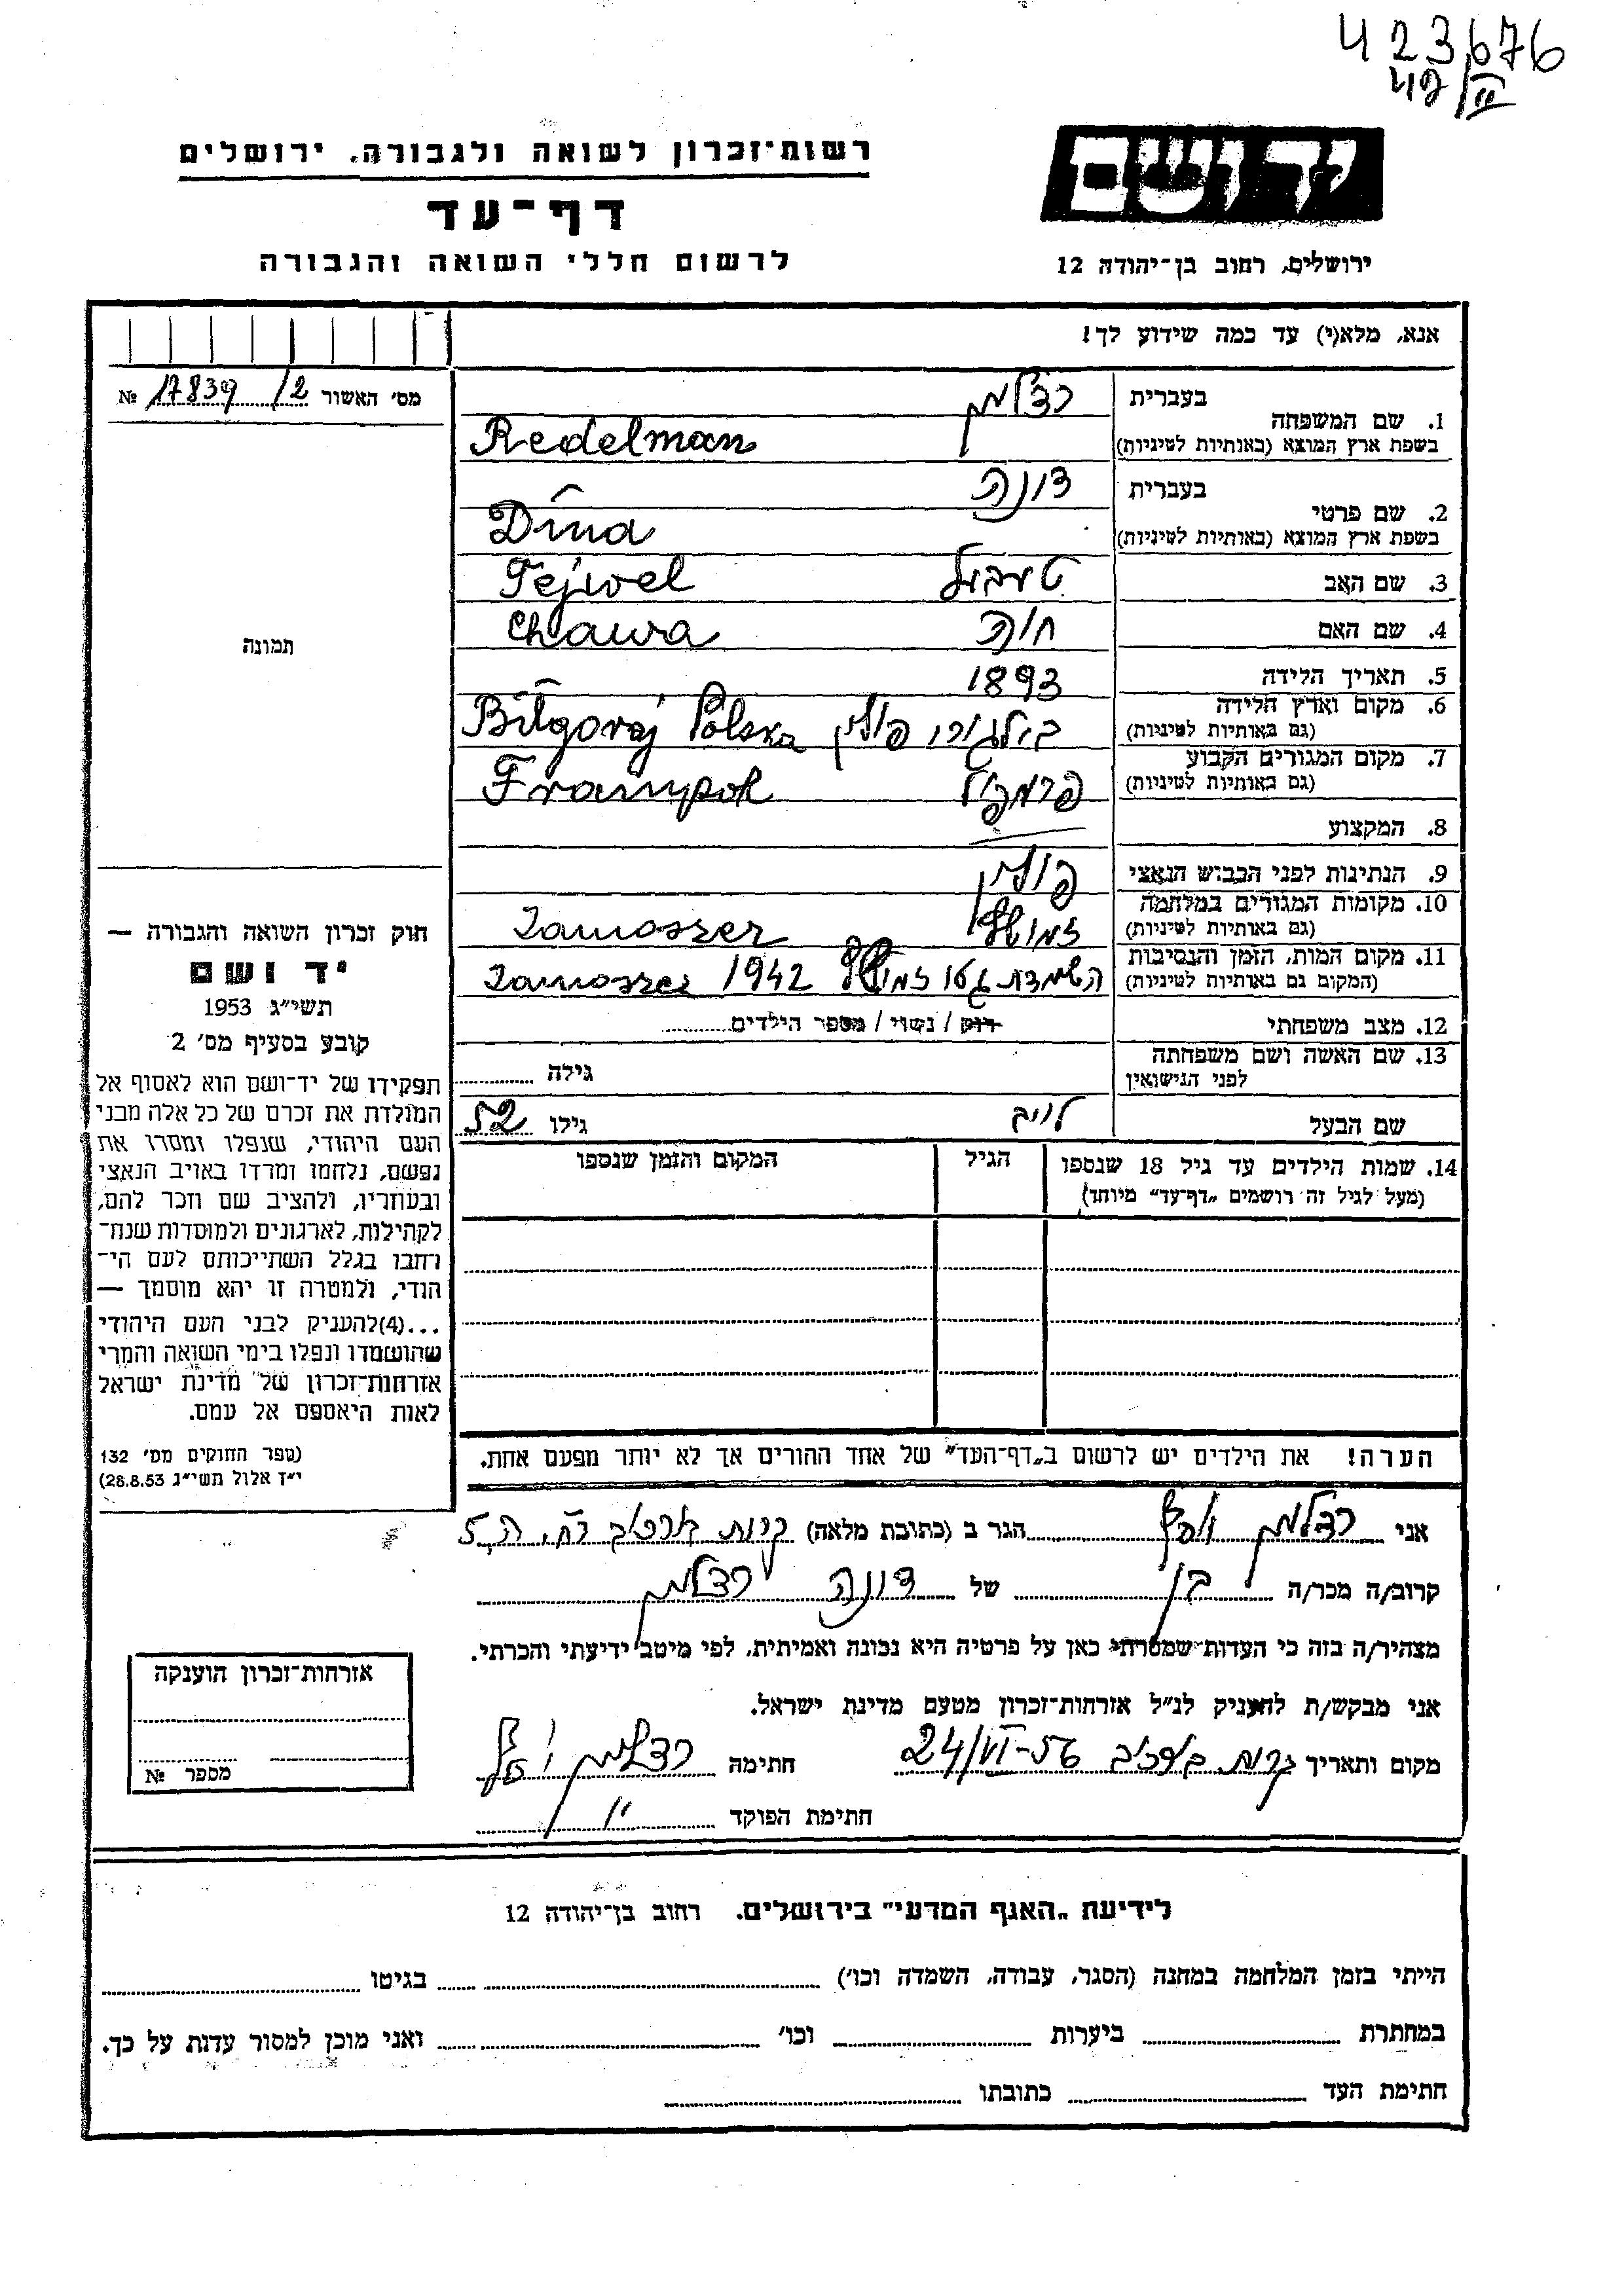 423676
42/II
ידושם
רשות־זכרון לשואה ולגבורה, ירושלים
דף־עד
לרשום חללי השואה והגבורה
ירושלים, רחוב בן־יהודה 12
אנא, מלא(י) עד כמה שידוע לך!
מס׳ האשור 17839/2 №
1. שם המשפחה
בעברית רדלמן
בשפת ארץ המוצא (באותיות לטיניות) Redelman
2. שם פרטי
בעברית דינה
בשפת ארץ המוצא (באותיות לטיניות) Dina
3. שם האב Fejwel
4. שם האם חוה Chawa
5. תאריך הלידה 1893
6. מקום וארץ הלידה
(גם באותיות לטיניות) בילגורי פולין Biłgoraj Polska
7. מקום המגורים הקבוע
(גם באותיות לטיניות) פרמפול Frampol
8. המקצוע
9. הנתינות לפני הכבוש הנאצי פולין
10. מקומות המגורים במלחמה
(גם באותיות לטיניות) Zamoszez
11. מקום המות, הזמן והנסיבות
(המקום גם באותיות לטיניות) השמדת גטו 1942 Zamoszez
12. מצב משפחתי רוק / נשוי / מספר הילדים
13. שם האשה ושם משפחתה
לפני הנישואין גילה
שם הבעל לייב גילו 52
14. שמות הילדים עד גיל 18 שנספו הגיל המקום והזמן שנספו
(מעל לגיל זה רושמים „דף־עד״ מיוחד)
הערה! את הילדים יש לרשום ב„דף־העד״ של אחד ההורים אך לא יותר מפעם אחת.
תמונה
חוק זכרון השואה והגבורה —
יד ושם
תשי״ג 1953
קובע בסעיף מס׳ 2
תפקידו של יד־ושם הוא לאסוף אל
המולדת את זכרם של כל אלה מבני
העם היהודי, שנפלו ומסרו את
נפשם, נלחמו ומרדו באויב הנאצי
ובעוזריו, ולהציב שם וזכר להם,
לקהילות, לארגונים ולמוסדות שנח־
רבו בגלל השתייכותם לעם הי־
הודי, ולמטרה זו יהא מוסמך —
...(4)להעניק לבני העם היהודי
שהושמדו ונפלו בימי השואה והמרי
אזרחות־זכרון של מדינת ישראל
לאות היאספם אל עמם.
(ספר החוקים מס׳ 132
י״ז אלול תשי״ג 28.8.53)
אני רדלמן יוסף הגר ב (כתובת מלאה) קרית
קרוב/ה מכר/ה בן של דינה רדלמן
מצהיר/ה בזה כי העדות שמסרתי כאן על פרטיה היא נכונה ואמיתית, לפי מיטב ידיעתי והכרתי.
אני מבקש/ת להעניק לנ״ל אזרחות־זכרון מטעם מדינת ישראל.
מקום ותאריך קרית 24/VI-56 חתימה רדלמן יוסף
חתימת הפוקד
אזרחות־זכרון הוענקה
מספר №
לידיעת „האגף המדעי״ בירושלים. רחוב בן־יהודה 12
הייתי בזמן המלחמה במחנה (הסגר, עבודה, השמדה וכו׳) בגיטו
במחתרת ביערות וכו׳ ואני מוכן למסור עדות על כך.
חתימת העד כתובתו